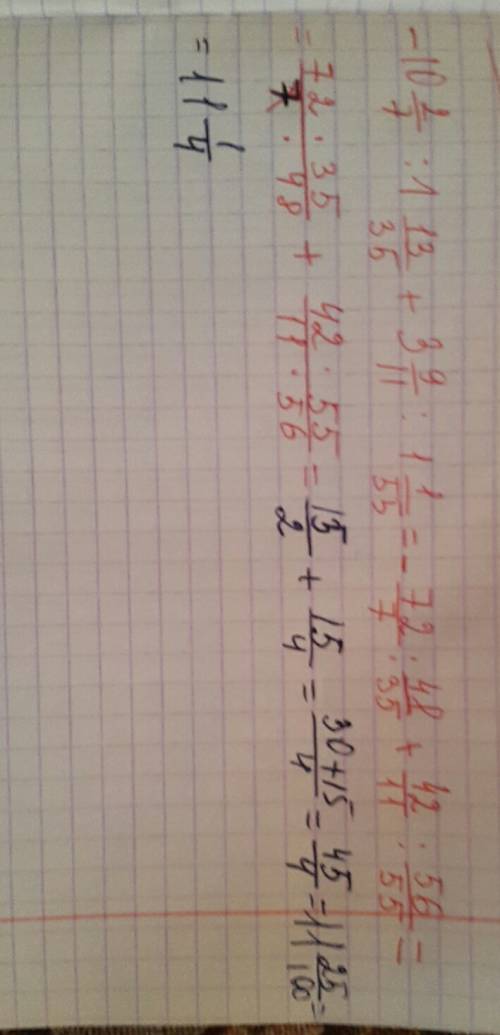 -10 2/7 : 1 13/35 + 3 9/11 : 1 1/55 = - 72/7 : 48/35 + 42/11 : 56/55 =
= 72 · 35 / 7 · 48 + 42 · 55 / 11 · 56 = 15/2 + 15/4 = 30+15/4 = 45/4 = 11 25/100 =
= 11 1/4